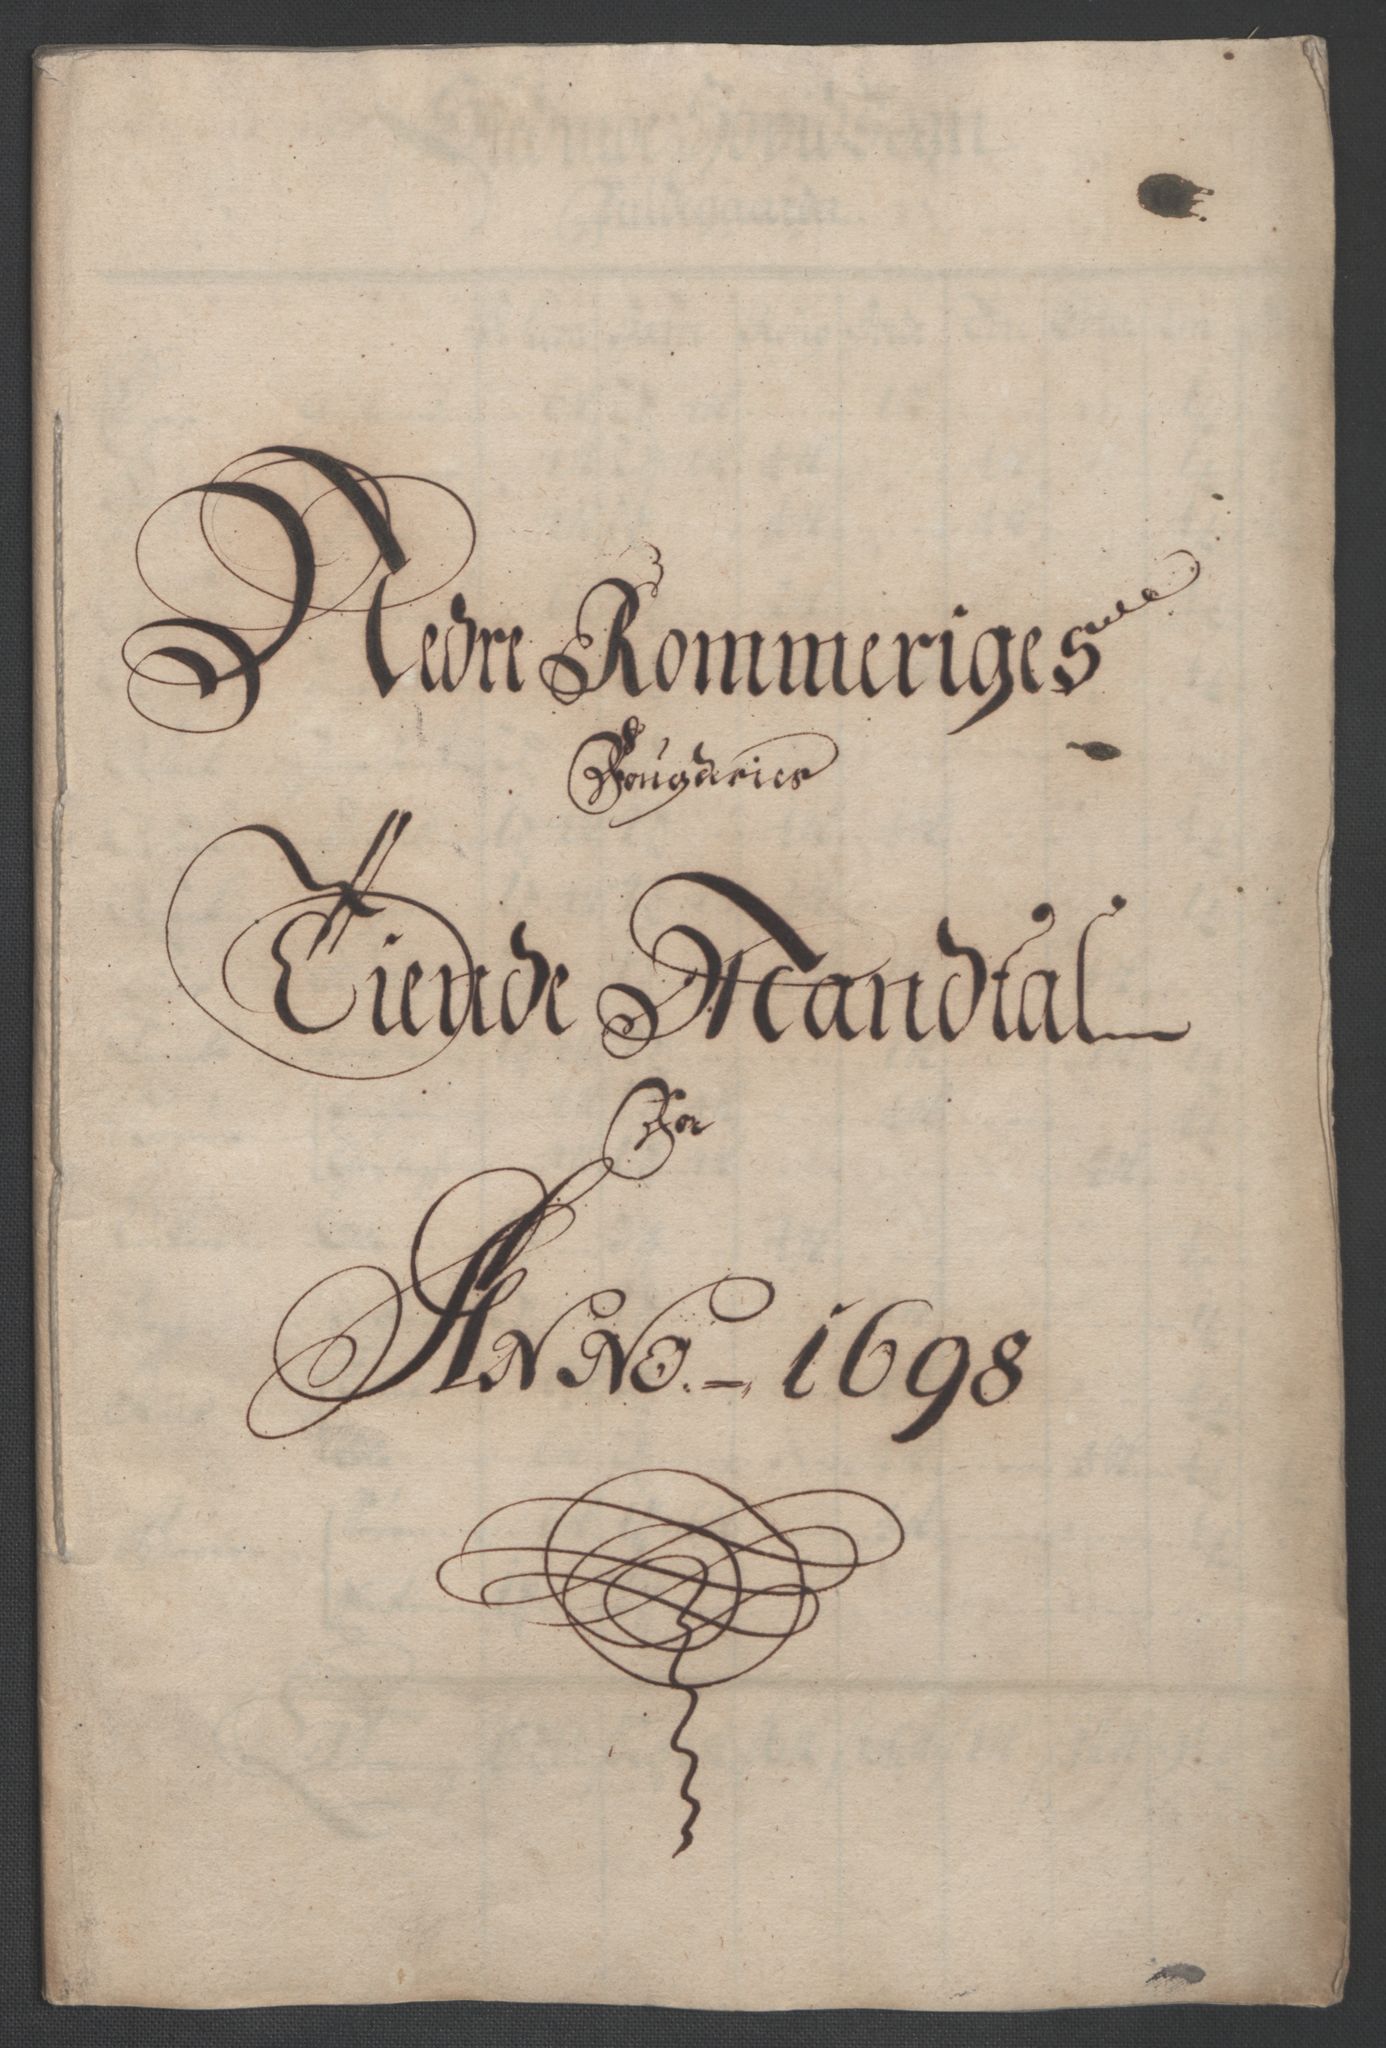 Nedre Rommeriges
Fougderies
Tiende Mandtal
For
Anno. - 1698